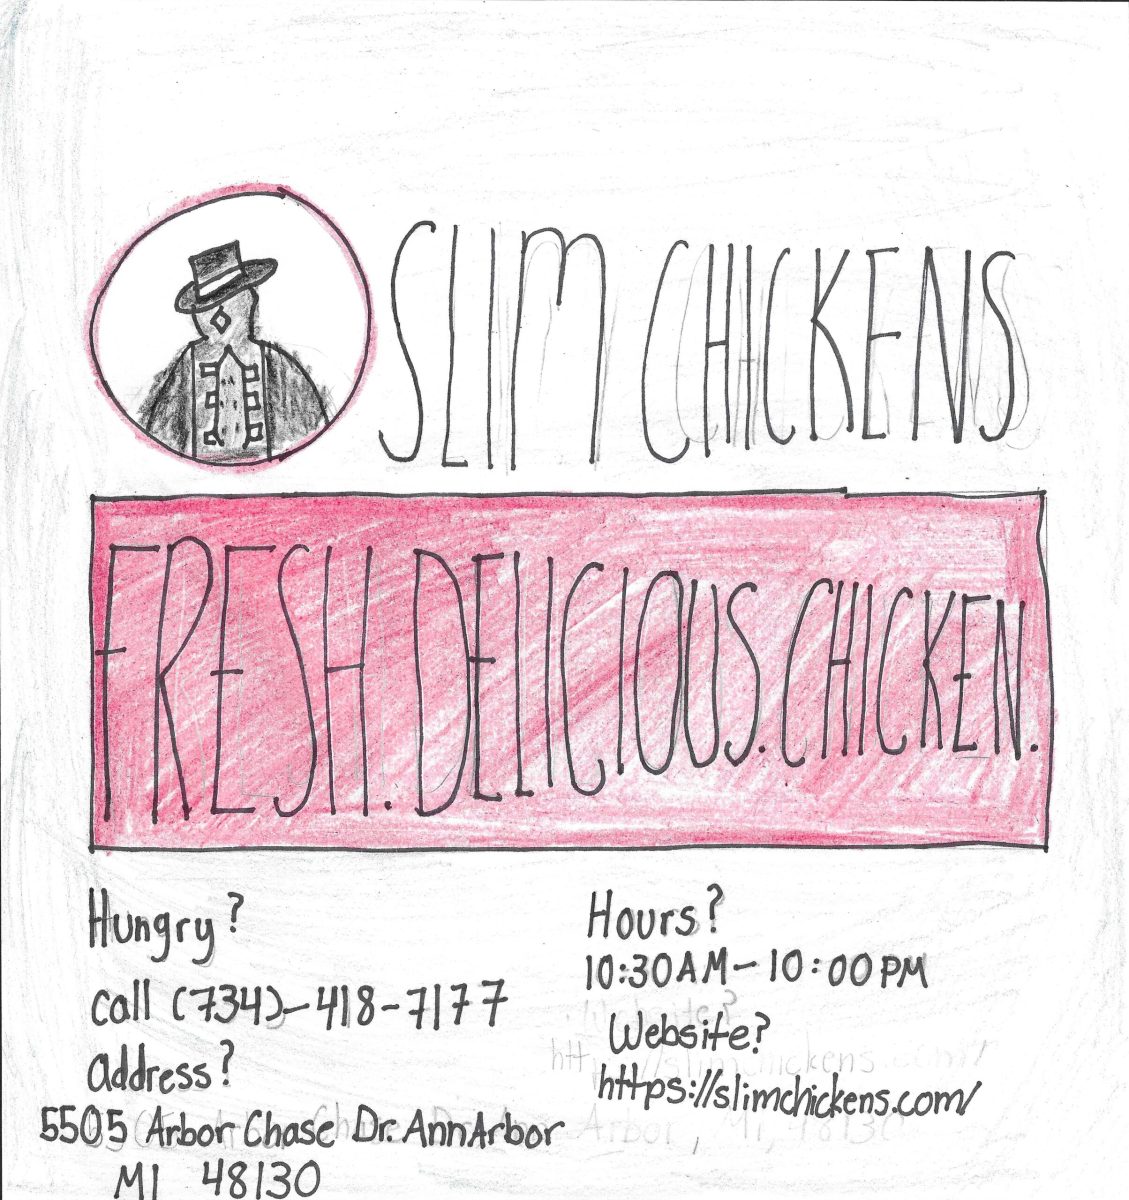 SLIM CHICKENS
FRESH. DELICIOUS. CHICKEN.
Hungry?
Call (734)-418-7177
Address?
5505 Arbor Chase Dr. Ann Arbor
MI 48130
Hours?
10:30AM-10:00PM
Website?
https://slimchickens.com/